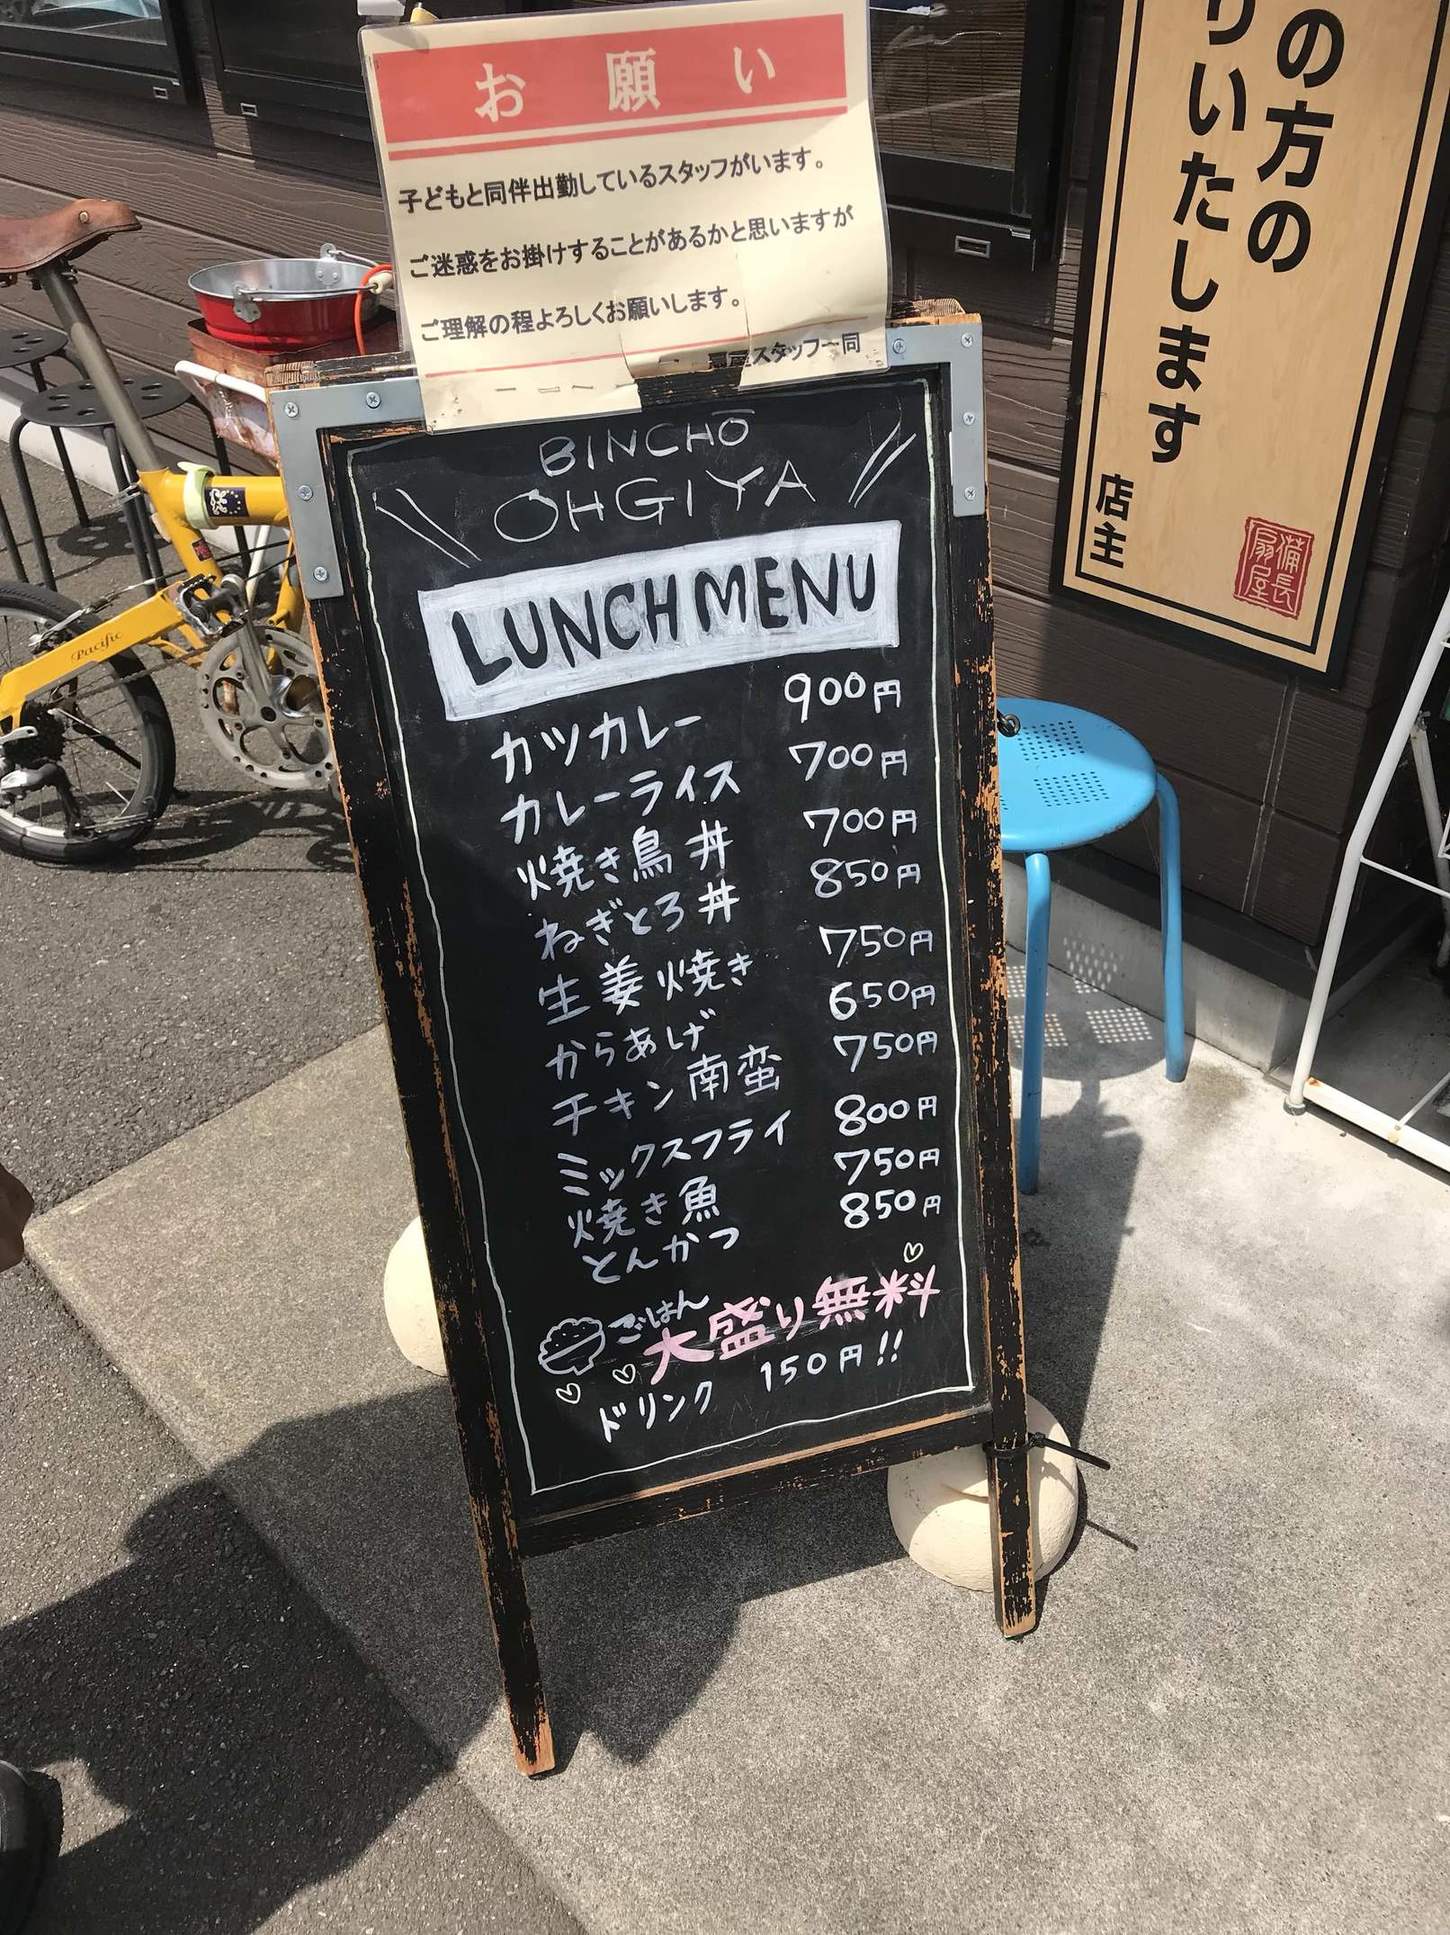 お願い
子どもと同伴出勤しているスタッフがいます。
ご迷惑をお掛けすることがあるかと思いますが
ご理解の程よろしくお願いします。
スタッフ一同
BINCHŌ
OHGIYA
LUNCH MENU
カツカレー 900円
カレーライス 700円
焼き鳥丼 700円
ねぎとろ丼 850円
生姜焼き 750円
からあげ 650円
チキン南蛮 750円
ミックスフライ 800円
焼き魚 750円
とんかつ 850円
ごはん
大盛り無料
ドリンク 150円!!
の方の
りいたします
店主
備長
扇屋
Pacific